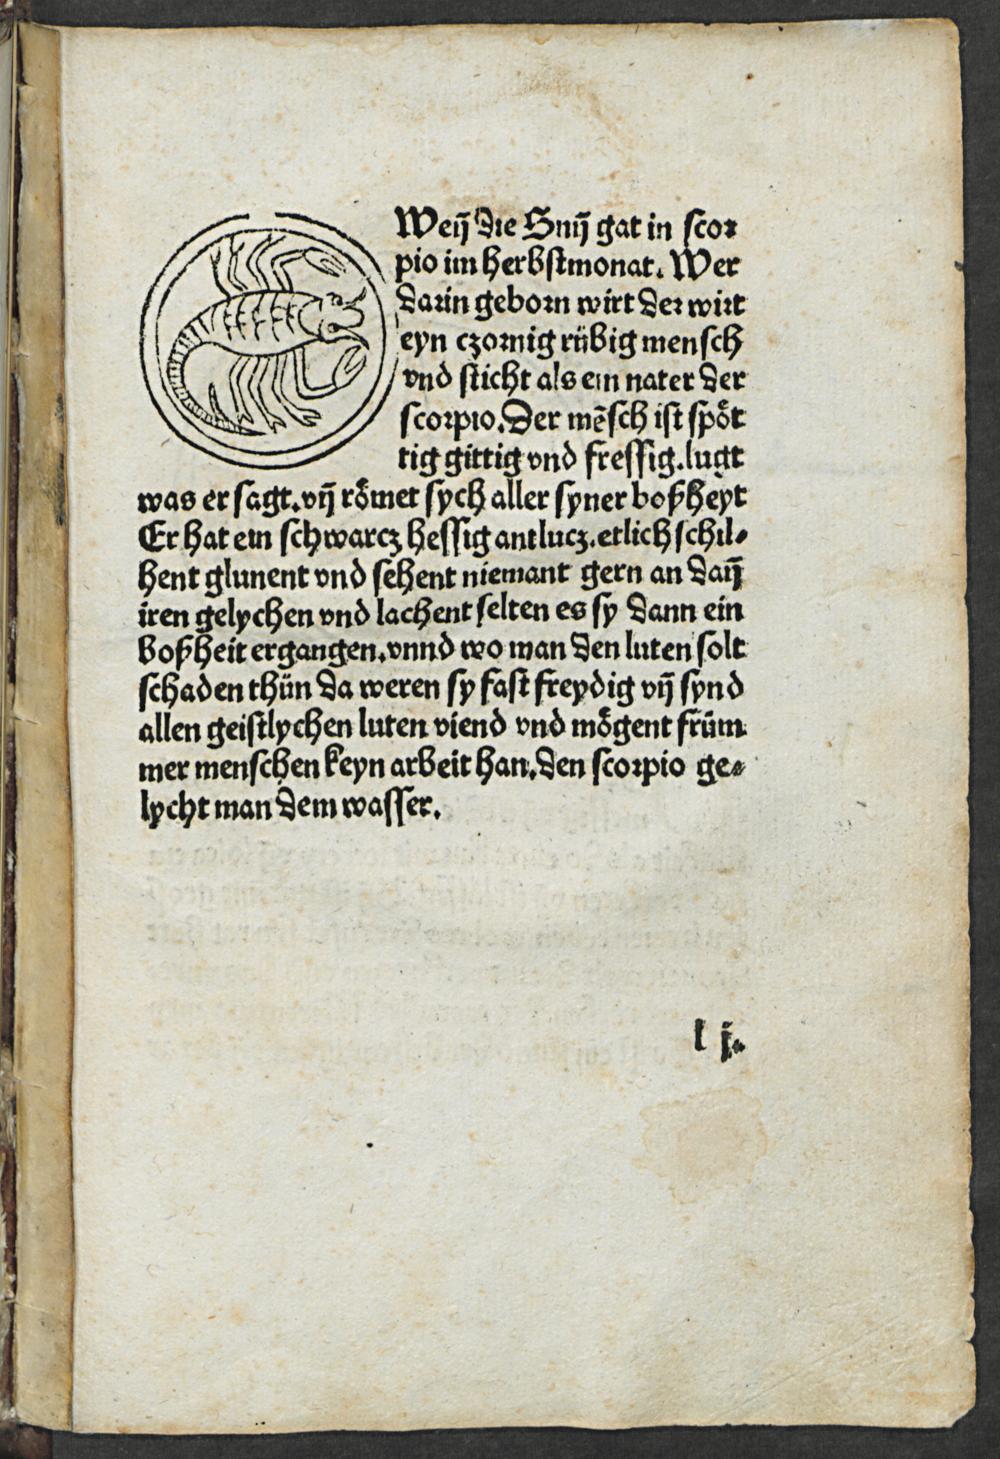 Weñ die Suñ gat in scor
pio im herbstmonat. Wer
darin geborn wirt der wirt
eyn czornig rübig mensch
vnd sticht als ein nater der
scorpio. Der mẽsch ist spoͤt
tig gittig vnd fressig. lugt
was er sagt. vñ roͤmet sych aller syner boßheyt
Er hat ein schwarcz hessig antlucz. etlich schil⸗
hent glunent vnd sehent niemant gern an dañ
iren gelychen vnd lachent selten es sy dann ein
boßheit ergangen. vnnd wo man den luten solt
schaden thün da weren sy fast freydig vñ synd
allen geistlychen luten viend vnd moͤgent früm
mer menschen keyn arbeit han. den scorpio ge⸗
lycht man dem wasser.
l j.